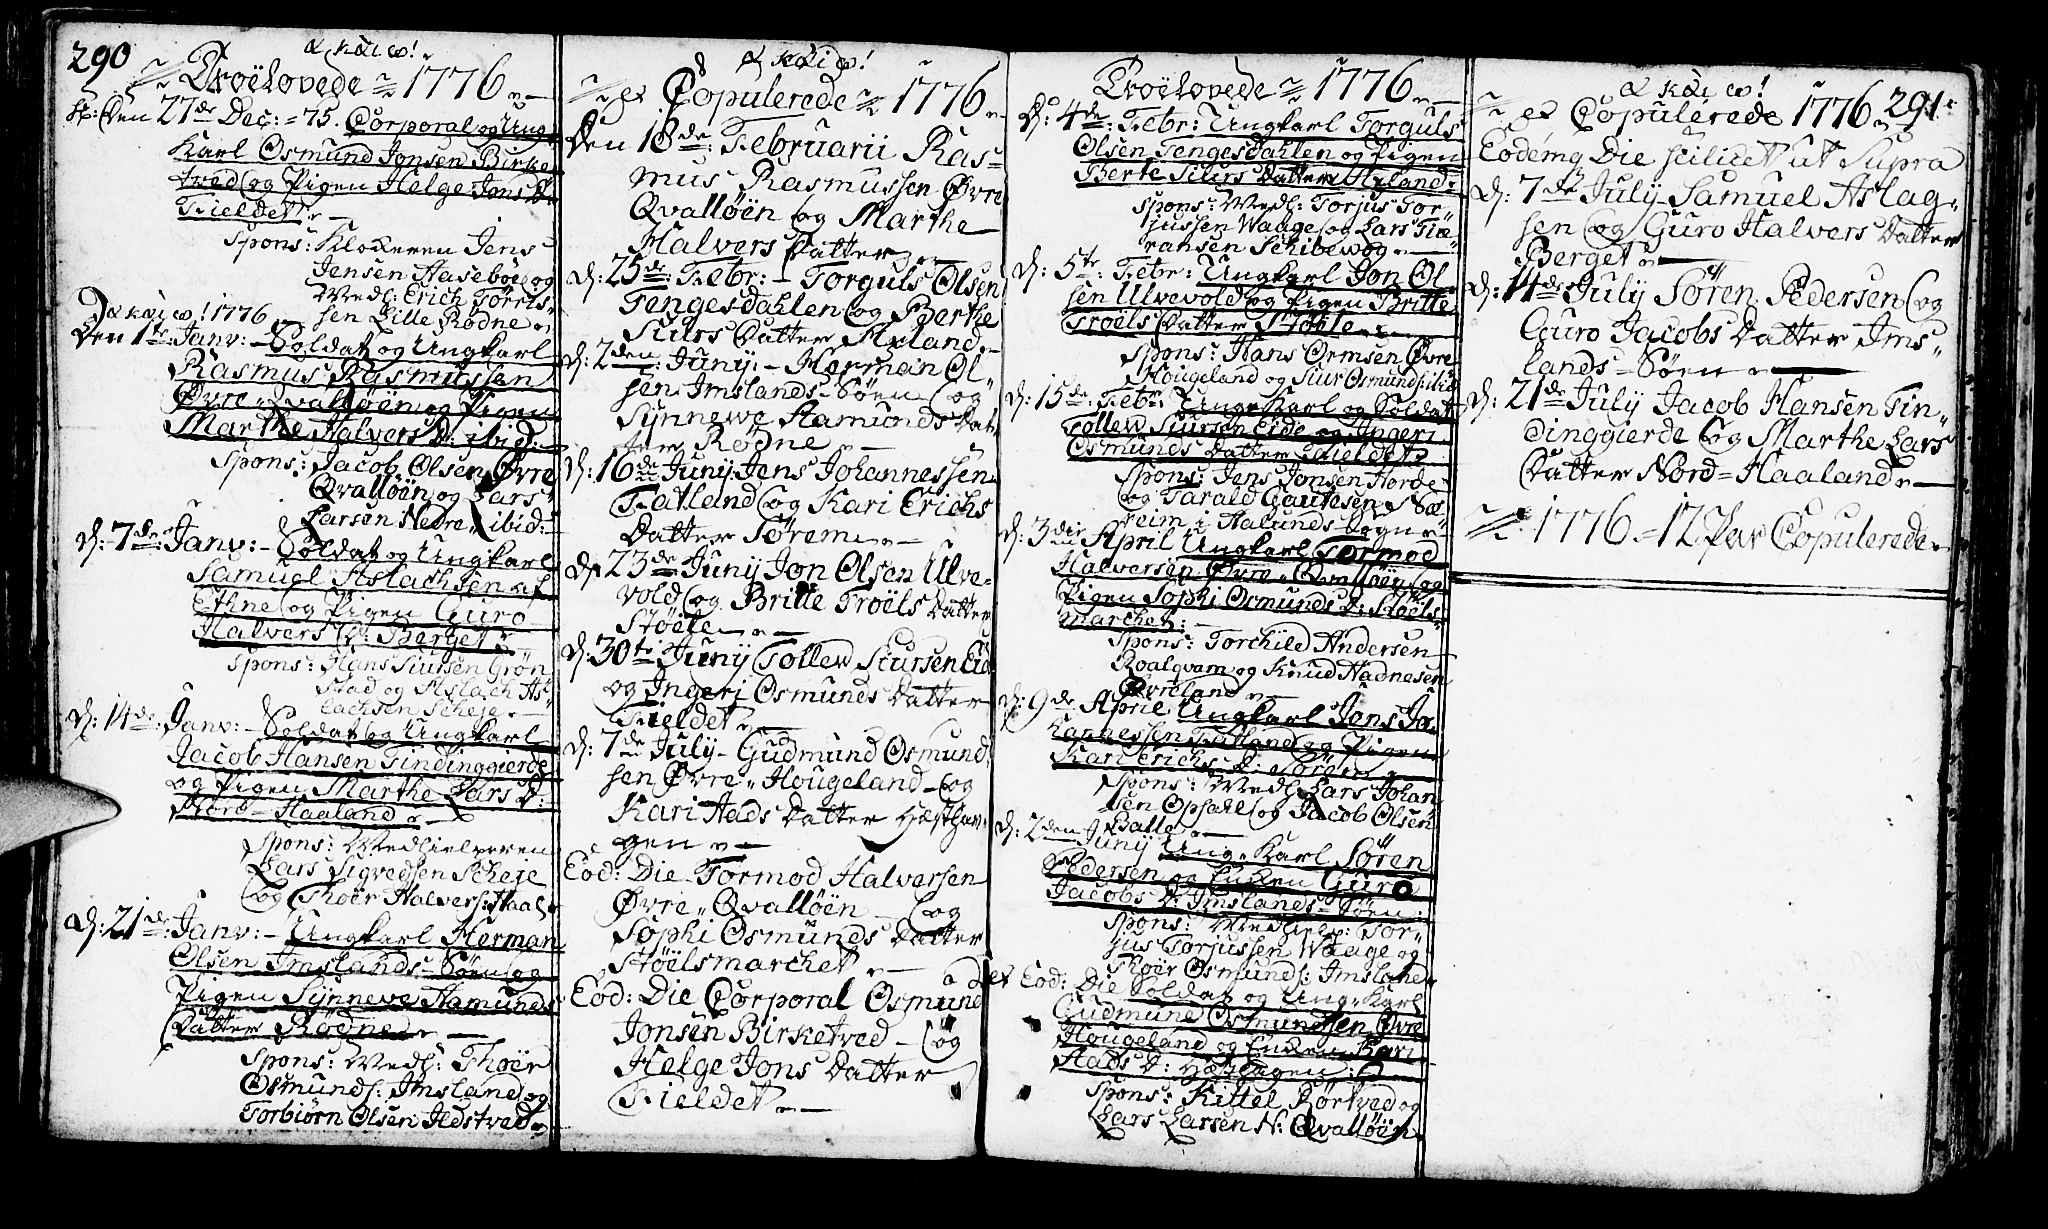 290
α καὶ ω!
Troëlovede 1776
Den 27de Dec: = 75. Corporal og Ung
Karl Osmund Jonsen Birke
tved og Pigen Helge Jons D:
Fieldet
Spons: Klokeren Jens
Jensen Haseboe og
Medh: Erich Törris
sen Lille Rodne
α καὶ ω! 1776
Den 1te Janv: Soldat og Ungkarl
Rasmus Rasmussen
Øvre Qvalløen og Pigen
Marthe Halvers D: ibid:
Spons: Jacob Olsen Øvre
Qvalløen og Lars
Larsen Nedre ibid:
D: 7de Janv: Soldat og Ungkarl
Samuel Aslachsen af
Ethne og Pigen Guro
Halvers D: Berget
Spons: Hans Siursen Grøn
stad og Aslach As
lachsen Scheje
D: 14de Janv: Soldat og Ungkarl
Jacob Hansen Tindinggierde
og Pigen Marthe Lars D:
Nord-Haaland
Spons: Medhielperen
Lars Sigvedsen Scheje
og Thoer Halvers: Haal
D: 21de Janv: Ungkarl Herman
Olsen Imslands-Søen og
Pigen Synneve Aamunds
Datter Rødne
Spons: Medh: Thoer
Osmunds: Imsland og
Torbiörn Olsen Ildstved
α καὶ ω!
et Copulerede 1776
Den 18de Februarii Ras
mus Rasmussen Øvre
Qvalløen og Marthe
Halvers Datter
D: 25de Febr: Torguls Olsen
Tengesdahlen og Berthe
Siurs Datter Axland
D: 2den Juny: Herman Ol
sen Imslands-Søen og
Synnewe Aamunds Dat
ter Rødne
D: 16de Juny Jens Johannessen
Fatland og Kari Erichs
Datter Sørem
D: 23de Juny Jon Olsen Ulve
vold og Britte Troëls Datter
Støele
D: 30te Juny Tollew Siursen Eide
og Ingeri Osmunds Datter
Fieldet
D: 7de July Gudmund Osmund
sen Øvre Hougeland og
Kari Aads Datter Hæstham
gen
Eod: Die Tormod Halversen
Øvre Qvalløen og
Sophi Osmunds Datter
Støelsmarchet
Eod: Die Corporal Osmund
Jonsen Birketved og
Helge Jons Datter
Fieldet
Troëlovede 1776
D: 4de Febr: Ungkarl Torguls
Olsen Tengesdahlen og Pigen
Berte Siurs Datter Axland
Spons: Medh: Torjus Tor
jussen Waage og Lars Tiæ
ransen Schibewog
D: 5te Febr: Ungkarl Jon Ol
sen Ulvevold og Pigen Britte
Troëls Datter Støele
Spons: Hans Ormsen Øvre
Hougeland og Siur Osmunds: ibid
D: 15de Febr: Unge Karl og Soldat
Tollew Siursen Eide og Ingeri
Osmunds Datter Fieldet
Spons: Jens Jonsen Horde
og Tarald Gautesen Sæ
reim i Aalunds Sogn
D: 3die April Ungkarl Tormod
Halversen Øvre Qvalløen og
Pigen Sophi Osmunds D: Støels
marchet:
Spons: Torchild Andersen
Roalqvam og Knud Aadnesen
Øvreland
D: 9de April Ungkarl Jens Jo
hannessen Fatland og Pigen
Kari Erichs D: Sørem
Spons: Medh: Lars Johan
sen Opsahl og Jacob Olsen
Balle
D: 2den Juny Ung Karl Søren
Pedersen og Enken Guro
Jacobs D: Imslands-Søen:
Spons: Medhielp: Tor
jus Torjussen Waage og
Thoer Osmunds: Imsland
Eod: Die Soldat og Ung Karl
Gudmund Osmundsen Øvre
Hougeland og Enken Kari
Aads D: Hæsthagen:
Spons: Kittel Rørtved og
Lars Larsen N: Qvalløen
α καὶ ω!
et Copulerede 1776
291
Eodemq Die scilicet ut Supra
D: 7de July Samuel Aslag
sen og Guro Halvers Datter
Berget
D: 14de July Søren Pedersen og
Guro Jacobs Datter Ims
lands-Søen
D: 21de July Jacob Hansen Tin
dinggierde og Marthe Lars
Datter Nord-Haaland
1776 = 12 Par Copulerede